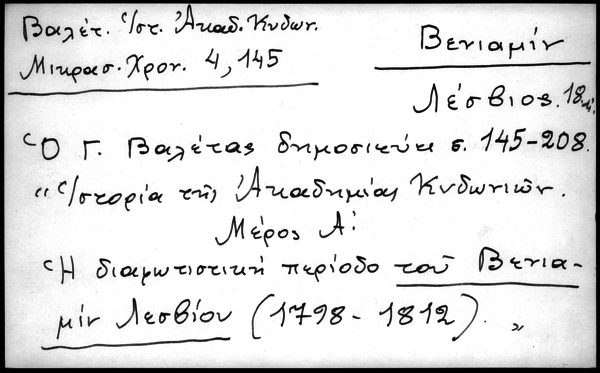 Βαλέτ. Ἱστ. Ἀκαδ. Κυδων.
Μικρασ. Χρον. 4, 145
Βενιαμίν
Λέσβιος. 18.
Ὁ Γ. Βαλέτας δημοσιεύει σ. 145-208.
"Ἱστορία τῆς Ἀκαδημίας Κυδωνιῶν.
Μέρος Α!
Ἡ διαφωτιστική περίοδο τοῦ Βενια-
μίν Λεσβίου (1798-1812). "